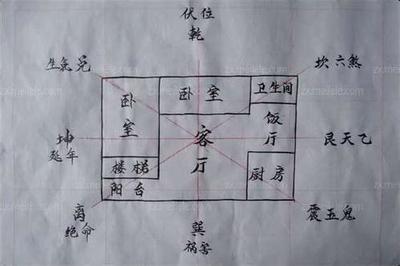 伏位
乾
生炁兑
坎六煞
卧室
卧室
卫生间
饭厅
坤
延年
客厅
艮天乙
楼梯
阳台
厨房
离
绝命
巽
祸害
震五鬼